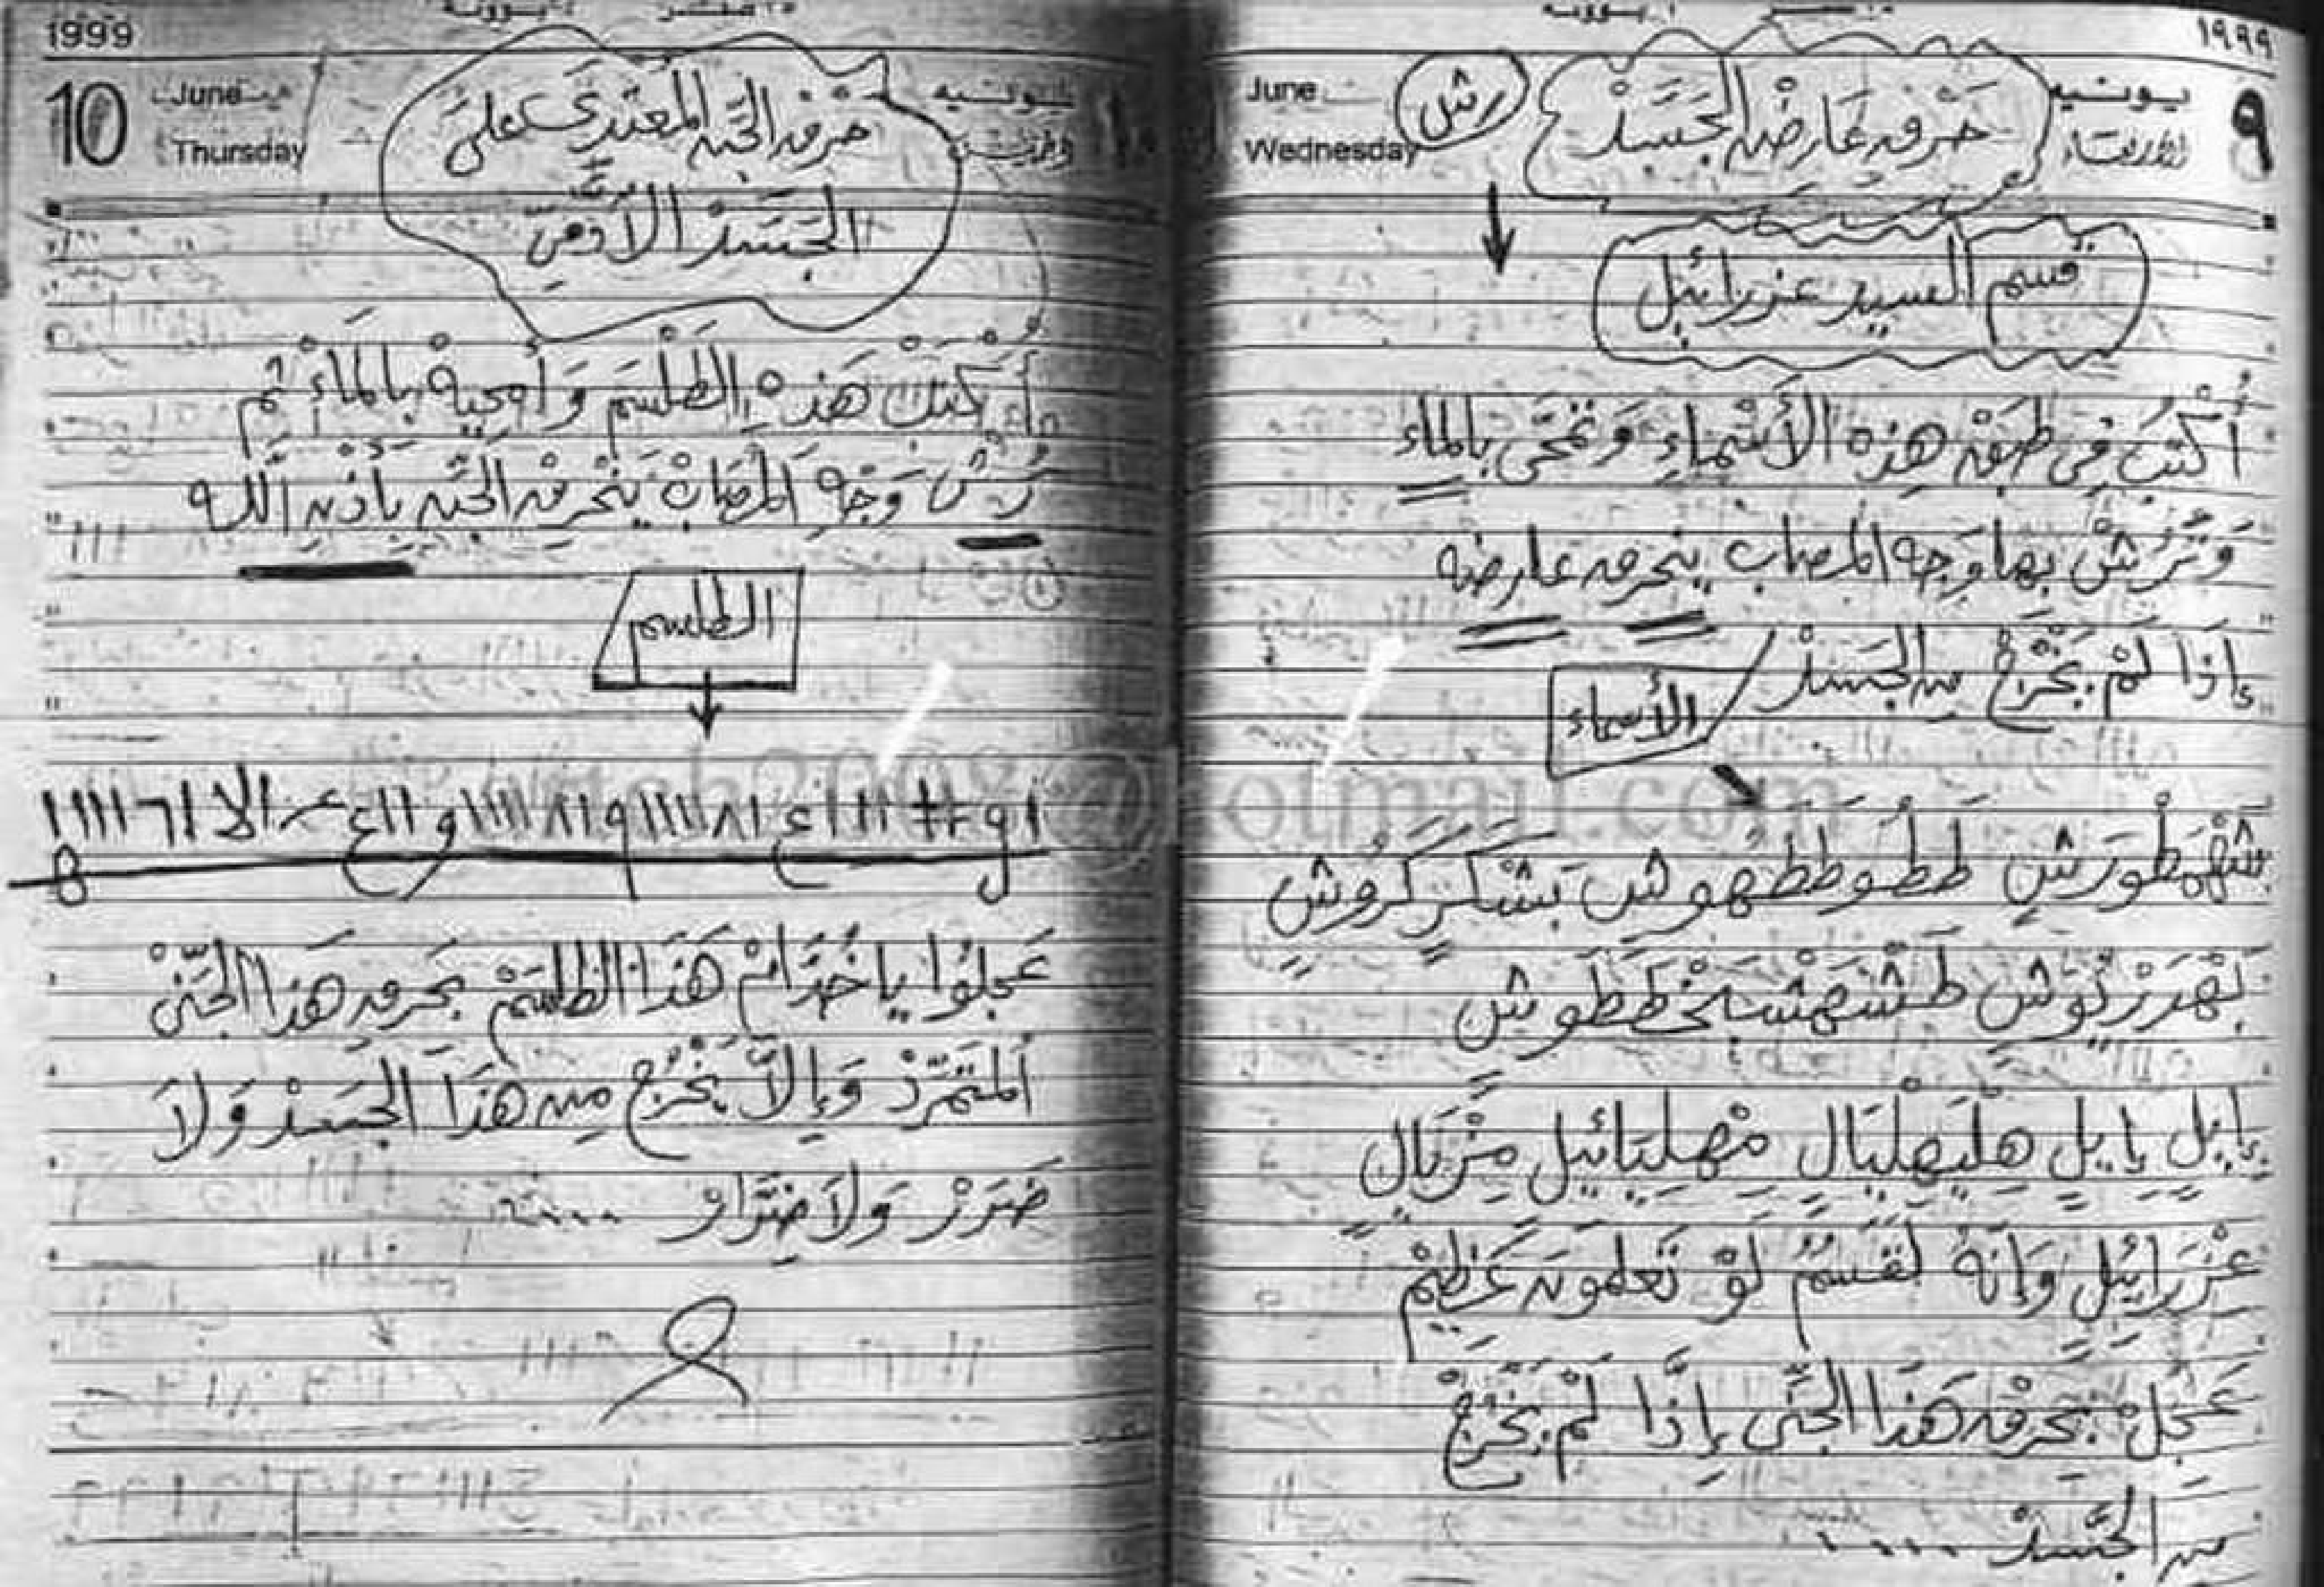 ١٩٩٩
June
Wednesday
يونيه
٩
رش
حرق عارض الجسد
قسم السيد عزرائيل
أكتب في طبق هذه الأسماء وتمحى بالماء
وترش بها وجه المصاب ينحرق عارضه
إذا لم يخرج من الجسد
الأسماء
شهمطورش طوططهوش بشكركروش
طشهشلخططوش
إيل إيل هليهليال مهليائيل مزيال
عزرائيل وإنه لقسم لو تعلمون عظيم
عجل بحرق هذا الجني إذا لم يخرج
من الجسد
1999
10
June
Thursday
يونيه
حرق الجن المعتدي على
الجسد الآدمي
أكتب هذه الطلسم وأمحيه بالماء ثم
رش وجه المصاب ينحرق الجن بأذن الله
الطلسم
عجلوا يا خدام هذا الطلسم بحرق هذا الجني
المتمرد وإلا يخرج من هذا الجسد ولا
ضرر ولا ضرار